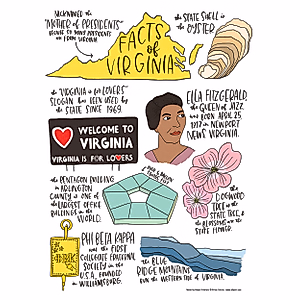 NICKNAMED
the "MOTHER of PRESIDENTS"
FACTS
of
VIRGINIA
the STATE SHELL is
the OYSTER
the "VIRGINIA is for LOVERS"
SLOGAN HAS BEEN USED BY
the STATE SINCE
1969.
ELLA FITZGERALD,
the QUEEN of JAZZ,
WAS BORN APRIL 25,
1917 in NEWPORT
NEWS VIRGINIA.
WELCOME TO
VIRGINIA
VIRGINIA IS FOR LOVERS
the PENTAGON BUILDING
in ARLINGTON
COUNTY is ONE of
the LARGEST OFFICE
BUILDINGS in the
WORLD.
the DOGWOOD
TREE is
the STATE
TREE, &
the BLOSSOM
is the STATE
FLOWER.
PHI BETA KAPPA
WAS the FIRST
COLLEGIATE FRATERNAL
SOCIETY in the
U.S.A., FOUNDED
in WILLIAMSBURG.
the BLUE
RIDGE MOUNTAINS
RUN the WESTERN SIDE of VIRGINIA.